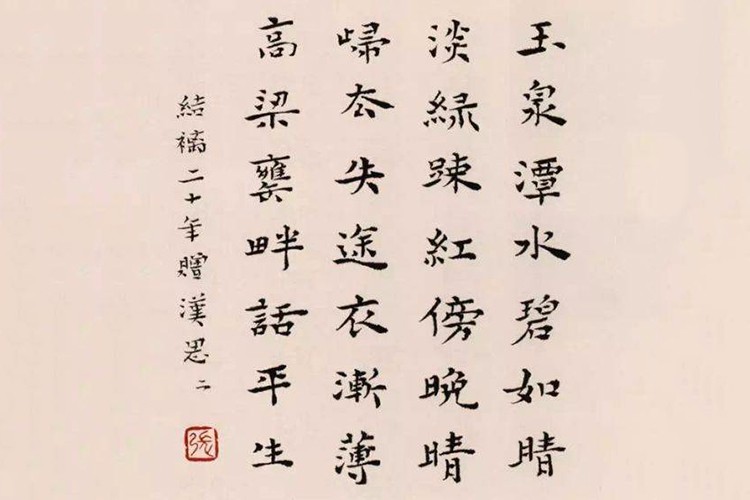 玉泉潭水碧如睛
淡綠踈紅傍晚晴
歸厺失途衣漸薄
高梁甕畔話平生
結褵二十年贈漢思 二
張